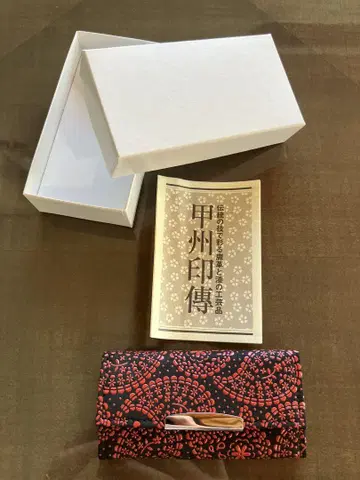 伝統の技で彩る鹿革と漆の工芸品
甲州印傳